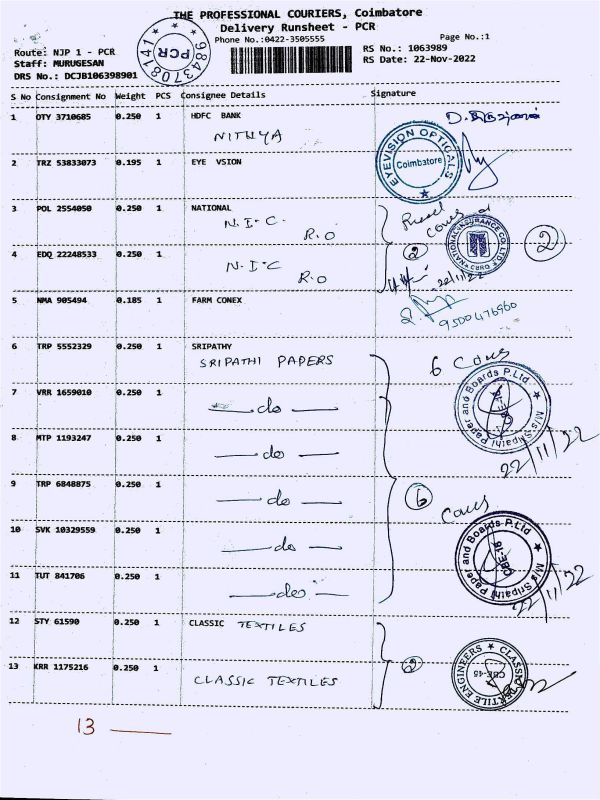 THE PROFESSIONAL COURIERS, Coimbatore
Delivery Runsheet - PCR
Phone No.:0422-3505555
Page No.:1
Route: NJP 1 - PCR
Staff: MURUGESAN
DRS No.: DCJB106398901
9843708141
PCR
RS No.: 1063989
RS Date: 22-Nov-2022
S No Consignment No Weight PCS Consignee Details Signature
1 OTY 3710685 0.250 1 HDFC BANK
NITHYA
EYEVISION OPTICALS
Coimbatore
2 TRZ 53833073 0.195 1 EYE VSION
3 POL 2554050 0.250 1 NATIONAL
N.I.C.
R.O
2
NATIONAL INSURANCE CO. LTD.
2
4 EDQ 22248533 0.250 1
N.I.C
R.O
22/11/22
5 NMA 905494 0.185 1 FARM CONEX
6 TRP 5552329 0.250 1 SRIPATHY
SRIPATHI PAPERS
6 Cous
M/s Sripathi Paper and Boards P.Ltd
22/11/22
7 VRR 1659010 0.250 1
— do —
8 MTP 1193247 0.250 1
— do —
9 TRP 6848875 0.250 1
— do —
6 Cous
10 SVK 10329559 0.250 1
— do —
M/s Sripathi Paper and Boards P.Ltd
CBE-15
22/11/22
11 TUT 841706 0.250 1
— do —
12 STY 61590 0.250 1 CLASSIC TEXTILES
2
CLASSIC TEXTILE ENGINEERS
CBE-45
13 KRR 1175216 0.250 1
CLASSIC TEXTILES
13 —